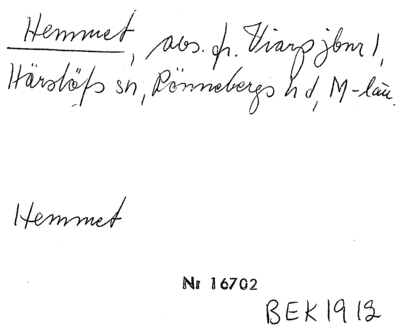 Hemmet, avs. fr. Viarp jbnr 1,
Härslöfs sn, Rönnebergs hd, M-län.
Hemmet
Nr 16702
BEK 1912